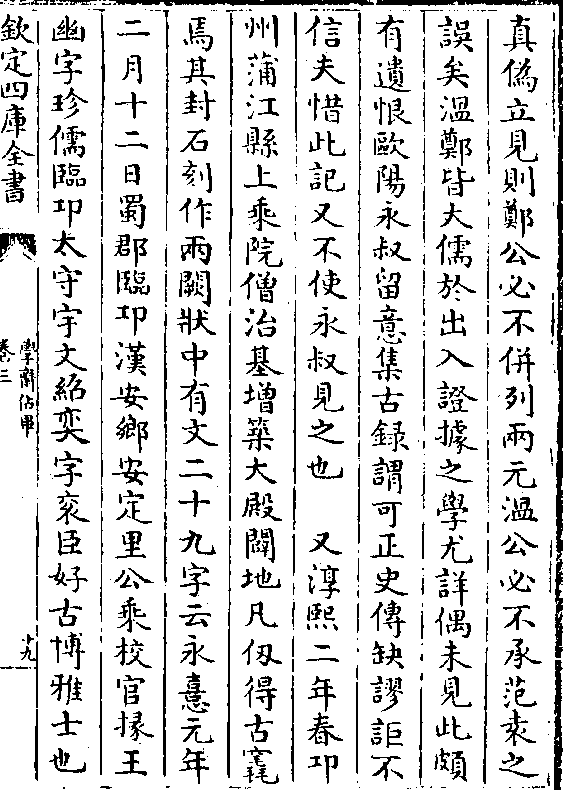 真偽立見則鄭公必不併列兩元溫公必不承范袁之
誤矣溫鄭皆大儒於出入證據之學尤詳偶未見此頗
有遺恨歐陽永叔留意集古録謂可正史傳缺謬詎不
信夫惜此記又不使永叔見之也　又淳熙二年春邛
州蒲江縣上乘院僧治基增築大殿闢地凡仭得古窽
焉其封石刻作兩闕狀中有文二十九字云永憙元年
二月十二日蜀郡臨邛漢安鄉安定里公乘校官掾王
幽字珍儒臨邛太守宇文紹奕字衮臣好古博雅士也
欽定四庫全書
學齋佔畢
卷三
十九